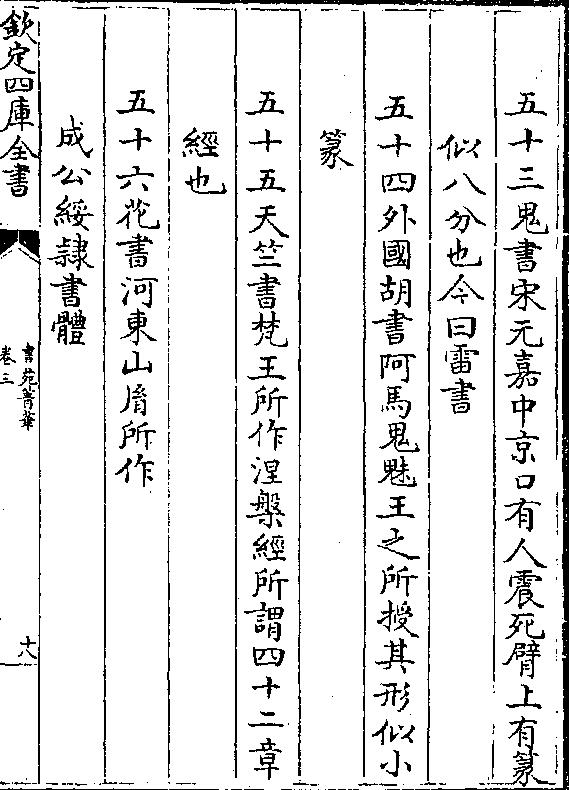 五十三鬼書宋元嘉中京口有人震死臂上有篆
似八分也今曰雷書
五十四外國胡書阿馬鬼魅王之所授其形似小
篆
五十五天竺書梵王所作涅槃經所謂四十二章
經也
五十六花書河東山胤所作
成公綏隸書體
欽定四庫全書
書苑菁華
卷三
十八